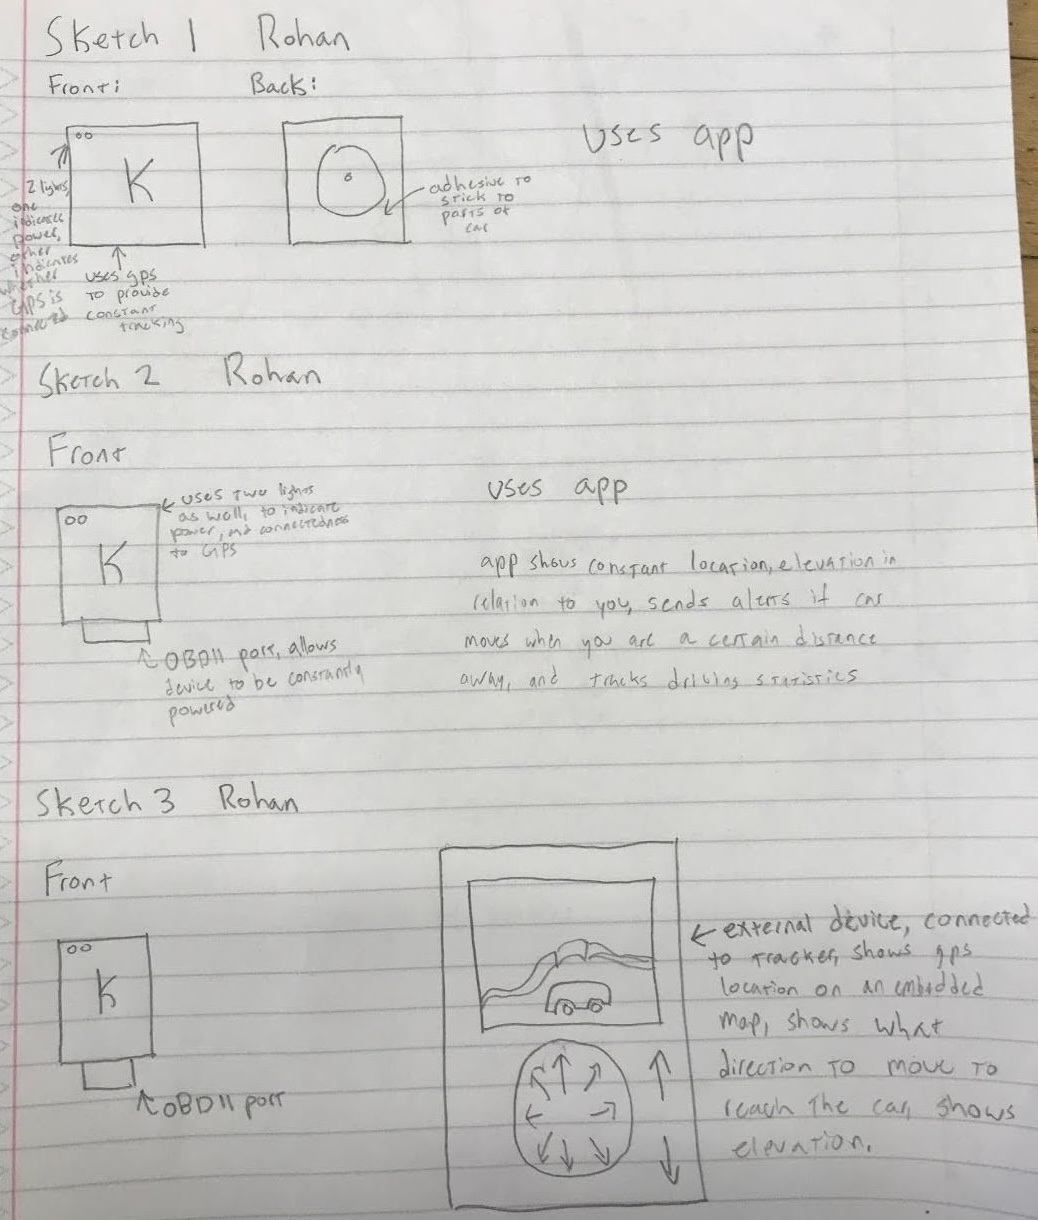 Sketch 1 Rohan
Front:
Back:
K
2 lights,
one
indicates
power,
other
indicates
whether
GPS is
connected
uses gps
to provide
constant
tracking
adhesive to
stick to
parts of
car
uses app
Sketch 2 Rohan
Front
K
uses two lights
as well, to indicate
power, and connectedness
to GPS
OBDII port, allows
device to be constantly
powered
uses app
app shows constant location, elevation in
relation to you, sends alerts if car
moves when you are a certain distance
away, and tracks driving statistics
Sketch 3 Rohan
Front
K
OBDII port
external device, connected
to tracker, shows gps
location on an embedded
map, shows what
direction to move to
reach the car, shows
elevation.